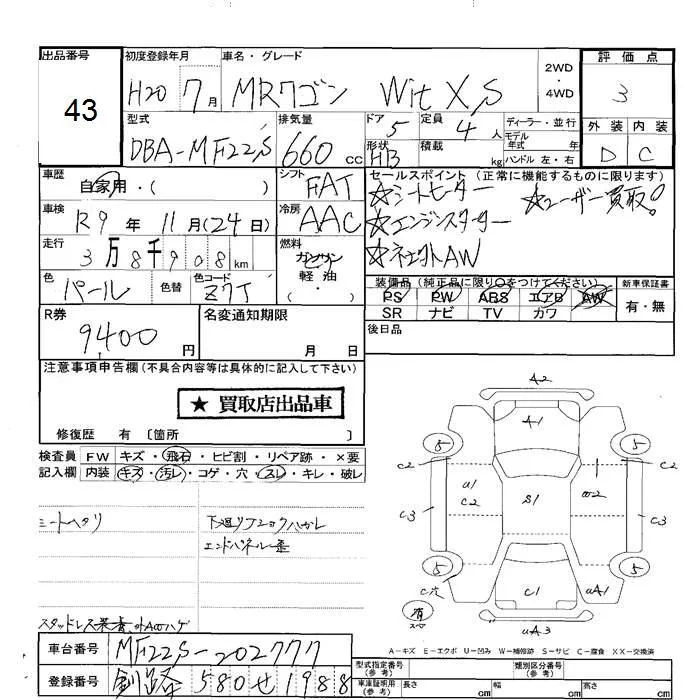 出品番号
43
初度登録年月
H20 7月
車名・グレード
MRワゴン Wit XS
2WD
・
4WD
評価点
3
外装 内装
D C
型式
DBA-MF22S
排気量
660 cc
ドア
5
定員
4人
ディーラー・並行
モデル
年式 年
ハンドル 左・右
形状
HB
積載
kg
車歴
自家用・( )
シフト
FAT
車検
R9年 11月(24日)
冷房
AAC
走行
3万8千908km
燃料
ガソリン
軽油
( ・ )
セールスポイント (正常に機能するものに限ります)
☆シートヒーター ☆ユーザー買取!
☆エンジンスターター
☆ネオクトAW
色
パール
色替
色コード
Z7T
装備品(純正品に限り○をつけてください)
PS PW ABS エアB AW
SR ナビ TV カワ
新車保証書
有・無
R券
9400円
名変通知期限
月 日
後日品
注意事項申告欄(不具合内容等は具体的に記入して下さい)
★ 買取店出品車
修復歴 有 〔箇所 〕
検査員 FW キズ・飛石・ヒビ割・リペア跡・×要
記入欄 内装 キズ・汚レ・コゲ・穴・スレ・キレ・破レ
シートヘタリ
下廻リフショクハガレ
エンドパネル
スタッドレス装着
A2
A1
5 5
C2 C2
U1
C2
S1
C3 C3
5 5
C穴
C1
UA1
有
スペ
UA3
A-キズ E-エクボ U-凹み W-補修跡 S-サビ C-腐食 XX-交換済
車台番号 MF22S-202777
登録番号 釧路 580 せ 1988
型式指定番号
(参考)
類別区分番号
(参考)
車庫証明用
(参考)
長さ cm 幅 cm 高さ cm